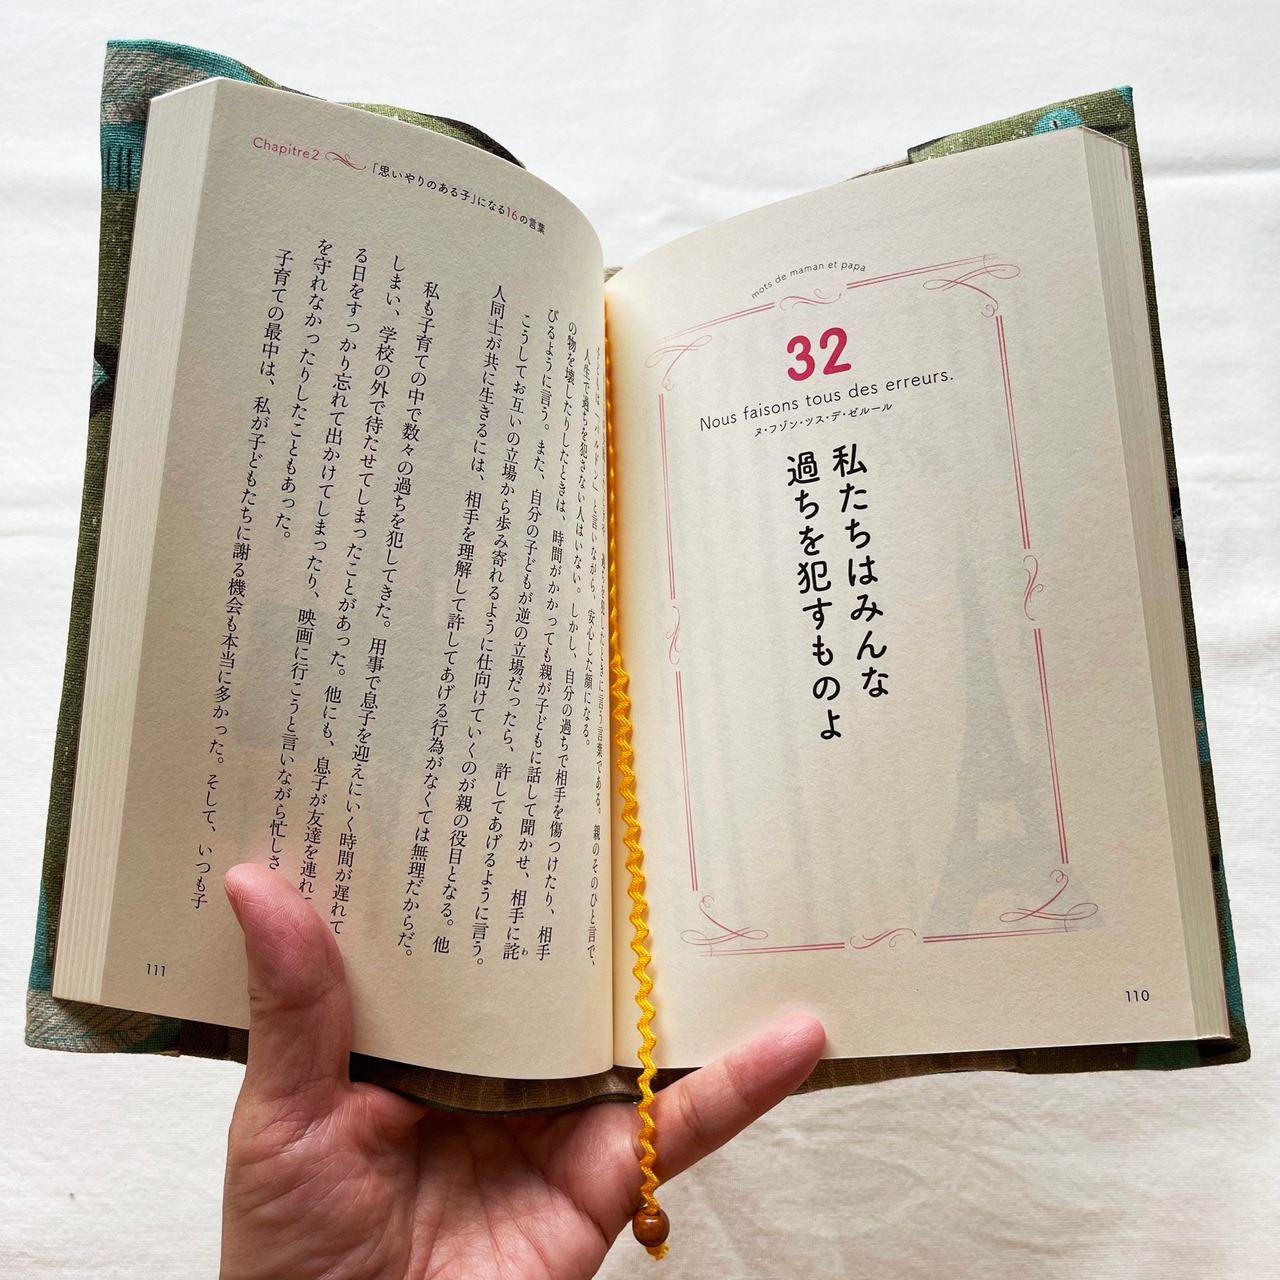 mots de maman et papa
32
Nous faisons tous des erreurs.
ヌ・フゾン・ツス・デ・ゼルール
私たちはみんな
過ちを犯すものよ
110
Chapitre2 「思いやりのある子」になる16の言葉
と言いながら、安心した顔になる。
人生で過ちを犯さない人はいない。しかし、自分の過ちで相手を傷つけたり、相手
の物を壊したりしたときは、時間がかかっても親が子どもに話して聞かせ、相手に詫
わ
びるように言う。また、自分の子どもが逆の立場だったら、許してあげるように言う。
こうしてお互いの立場から歩み寄れるように仕向けていくのが親の役目となる。他
人同士が共に生きるには、相手を理解して許してあげる行為がなくては無理だからだ。
私も子育ての中で数々の過ちを犯してきた。用事で息子を迎えにいく時間が遅れて
しまい、学校の外で待たせてしまったことがあった。他にも、息子が友達を連れ
る日をすっかり忘れて出かけてしまったり、映画に行こうと言いながら忙しさ
を守れなかったりしたこともあった。
子育ての最中は、私が子どもたちに謝る機会も本当に多かった。そして、いつも子
111